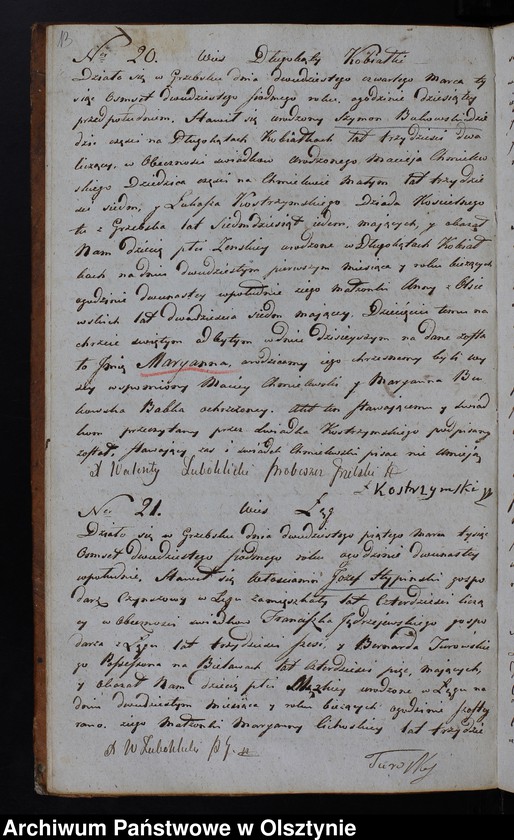 13
Nro 20. Wieś Długokąty Kobiałki
Działo się w Grzebsku dnia dwudziestego czwartego Marca ty
siąc Osmset dwudziestego siodmego roku, ogodzinie dziesiątey
przedpołudniem. Stawił się urodzony Szymon Bukowski dzie
dzic części na Długokątach Kobiałkach lat trzydzieści dwa
liczący, w Obecności swiadków urodzonego Macieja Chmielew
skiego Dziedzica części na Chmielewie Małym lat trzydzie
ści siedm, y Łukasza Kostrzymskiego Dziada Kościelnego
tu z Grzebska lat Siedmdziesiąt jeden, mających, y okazał
Nam dziecię płci Zenskiey urodzone w Długokątach Kobiał
kach na dniu dwudziestym pierwszym miesiąca y roku bieżących
ogodzinie dwunastey wpołudnie ziego małżonki Anny z
lat dwadzieścia siedm mający. Dziecięciu temu na
chrzcie swiętym odbytym w dniu dzisieyszym na dane zosta
ło Imię Maryanna, rodzicami iego chrzesnemi byli wy
żey wspomniony Maciey Chmielewski y Maryanna Bu
kowska Babka ochrzczoney. Akt ten stawaiącemu y swiad
kom przeczytany przez swiadka Kostrzymskiego podpisany
został, Stawaiący zaś i swiadek Chmielewski pisać nie umieją
X Walenty Luboklicki Proboszcz
Kostrzymski
Nro 21. Wieś Łęg
Działo się w Grzebsku dnia dwudziestego piątego Marca tysiąc
Osmset dwudziestego siodmego roku ogodzinie dwunastey
wpołudnie, Stawił się Włościanin Jozef Stypinski gospo
darz Czynszowy w Łęgu zamięszkały lat Czterdzieści liczą
cy w Obecności swiadków Franciszka Jędrzejewskiego gospo
darza z Łęgu lat trzydzieści y Bernarda Turowskie
go Possessora na Bielawach lat czterdzieści pięc, maiących,
y okazał Nam dziecię płci Męzkiey urodzone w Łęgu na
dniu dwudziestym miesiąca y roku bieżących ogodzinie szostey
rano. ziego Małzonki Maryanny lat trzydzie
X W Luboklicki P G.
Turowski
Archiwum Państwowe w Olsztynie